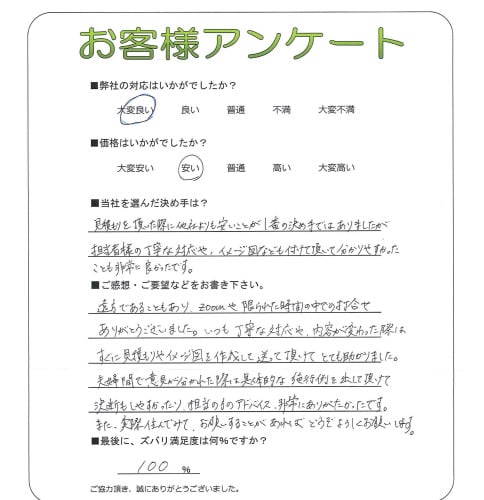 お客様アンケート
■弊社の対応はいかがでしたか？
大変良い 良い 普通 不満 大変不満
■価格はいかがでしたか？
大変安い 安い 普通 高い 大変高い
■当社を選んだ決め手は？
見積もりを頂いた際に他社よりも安いことが1番の決め手ではありましたが
担当者様の丁寧な対応や、イメージ図なども付けて頂いて分かりやすかった
ことも非常に良かったです。
■ご感想・ご要望などをお書き下さい。
遠方であることもあり、zoomや限られた時間の中での打合せ
ありがとうございました。いつも丁寧な対応や、内容が変わった際は
すぐに見積もりやイメージ図を作成して送って頂けてとても助かりました。
夫婦間で意見が分かれた際は基本的な施行例を出して頂けて
決断もしやすかったり、担当の方のアドバイス、非常にありがたかったです。
また、実際住んでみて、お願いすることがあればどうぞよろしくお願いします。
■最後に、ズバリ満足度は何％ですか？
100 %
ご協力頂き、誠にありがとうございました。